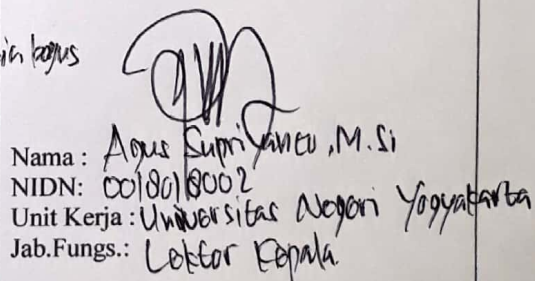 bagus
Nama : Agus Supriyanto, M.Si
NIDN: 0018018002
Unit Kerja : Universitas Negeri Yogyakarta
Jab.Fungs.: Lektor Kepala